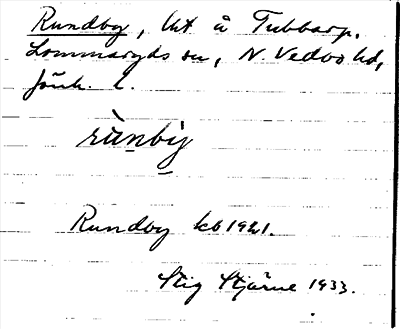 Rundby, lht å Tubbarp,
Lommaryds sn, N. Vedbo hd,
Jönk. l.
rùnby
Rundby kb 1921.
Stig Stjärne 1933.